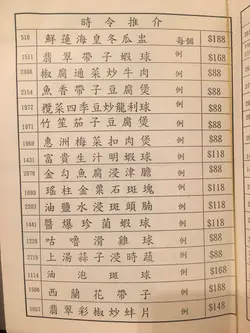 時令推介
510 鮮蓮海皇冬瓜盅 每個 $188
1511 翡翠帶子蝦球 例 $168
2098 椒腐通菜炒牛肉 例 $68
2154 魚香帶子豆腐煲 例 $68
1972 欖菜四季豆炒龍利球 例 $68
1971 竹笙茄子豆腐煲 例 $68
1969 惠洲梅菜扣肉煲 例 $68
1431 富貴生汁明蝦球 例 $118
2078 金勾魚唇浸津膽 例 $118
1693 瑤柱金栗石斑塊 例 $118
2203 油鹽水浸斑頭腩 例 $118
1693 醬爆珍菌蝦球 例 $118
1228 咕嚕滑雞球 例 $68
2719 上湯蒜子浸時蔬 例 $68
1014 油泡斑球 例 $168
1506 西蘭花帶子 例 $188
1057 翡翠彩椒炒蚌片 例 $148